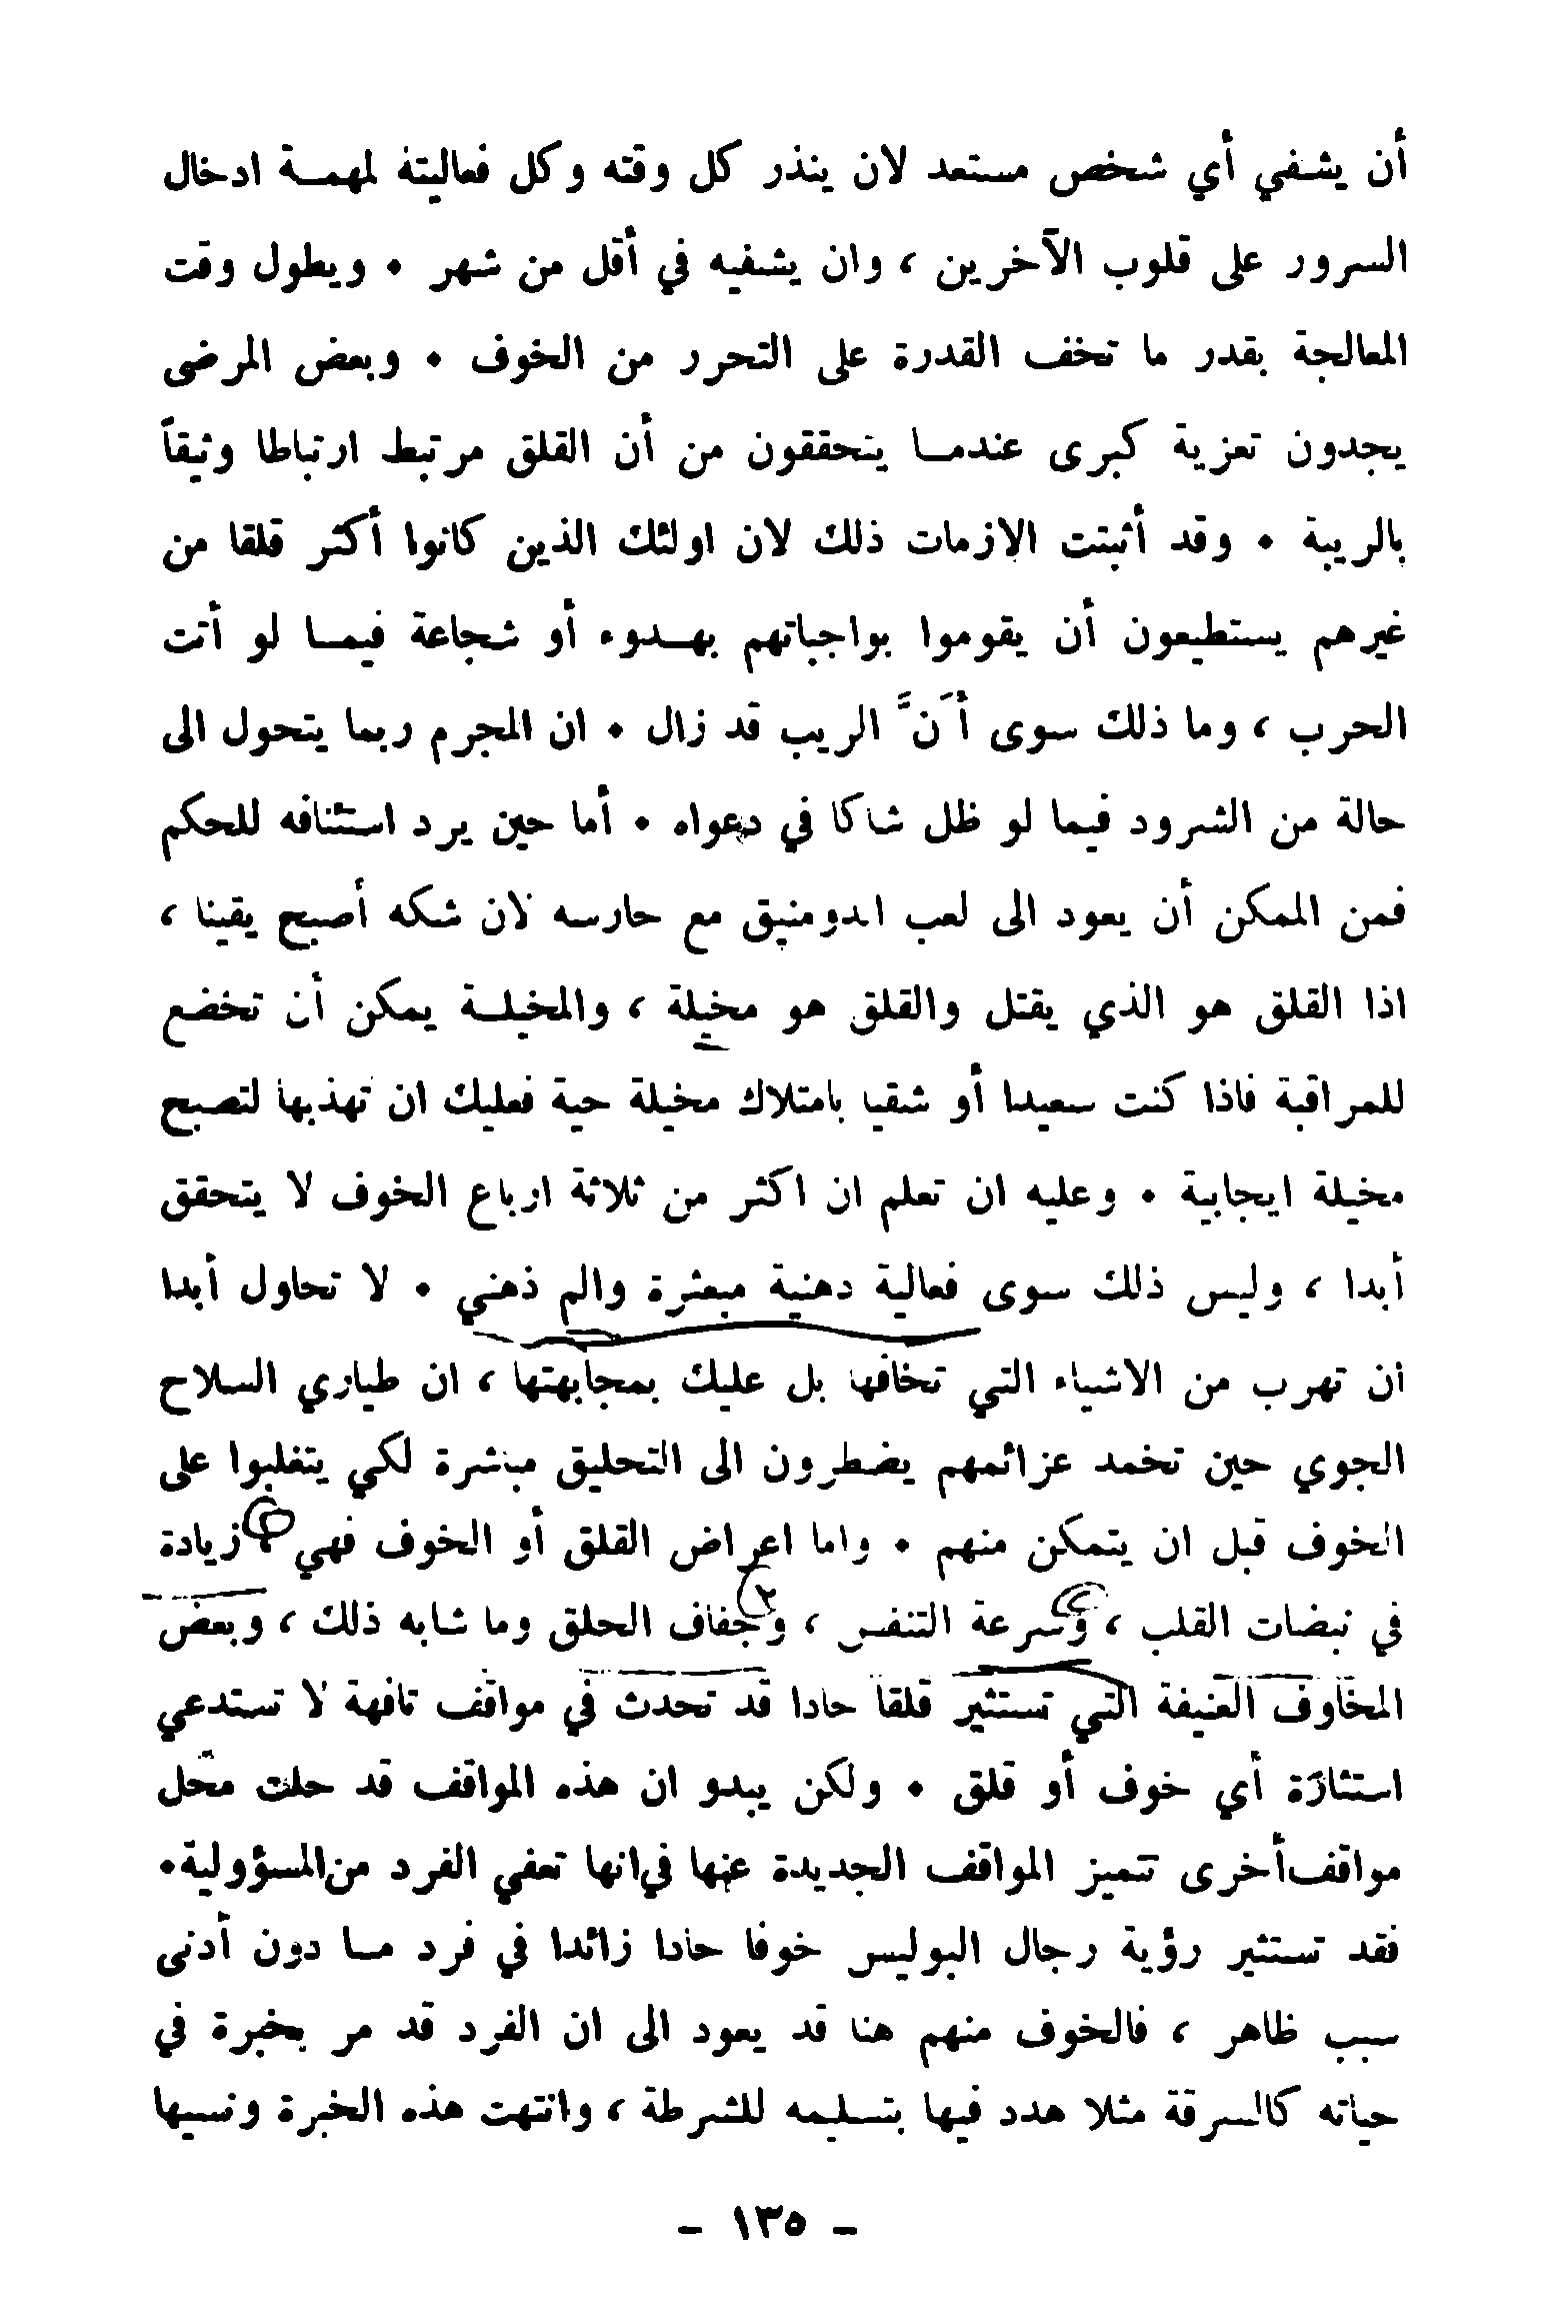 أن يشفي أي شخص مستعد لان ينذر كل وقته وكل فعاليته لمهمة ادخال
السرور على قلوب الآخرين ، وان يشفيه في أقل من شهر . ويطول وقت
المعالجة بقدر ما تخف القدرة على التحرر من الخوف . وبعض المرضى
يجدون تعزية كبرى عندما يتحققون من أن القلق مرتبط ارتباطا وثيقاً
بالريبة . وقد أثبتت الازمات ذلك لان اولئك الذين كانوا أكثر قلقا من
غيرهم يستطيعون أن يقوموا بواجباتهم بهدوء أو شجاعة فيما لو أتت
الحرب ، وما ذلك سوى أَنَّ الريب قد زال . ان المجرم ربما يتحول الى
حالة من الشرود فيما لو ظل شاكا في دعواه . أما حين يرد استئنافه للحكم
فمن الممكن أن يعود الى لعب الدومنيق مع حارسه لان شكه أصبح يقينا ،
اذا القلق هو الذي يقتل والقلق هو مخيلة ، والمخيلة يمكن أن تخضع
للمراقبة فاذا كنت سعيدا أو شقيا بامتلاك مخيلة حية فعليك ان تهذبها لتصبح
مخيلة ايجابية . وعليه ان تعلم ان اكثر من ثلاثة ارباع الخوف لا يتحقق
أبدا ، وليس ذلك سوى فعالية دهنية مبعثرة والم ذهني . لا تحاول أبدا
ان تهرب من الاشياء التي تخافها بل عليك بمجابهتها ، ان طياري السلاح
الجوي حين تخمد عزائمهم يضطرون الى التحليق مباشرة لكي يتغلبوا على
الخوف قبل ان يتمكن منهم . واما اعراض القلق أو الخوف فهي زيادة
في نبضات القلب ، وسرعة التنفس ، وجفاف الحلق وما شابه ذلك ، وبعض
المخاوف العنيفة التي تستثير قلقا حادا قد تحدث في مواقف تافهة لا تستدعي
استثارة أي خوف أو قلق . ولكن يبدو ان هذه المواقف قد حلت محل
مواقف أخرى تتميز المواقف الجديدة عنها في انها تعفي الفرد من المسؤولية .
فقد تستثير رؤية رجال البوليس خوفا حادا زائدا في فرد ما دون أدنى
سبب ظاهر ، فالخوف منهم هنا قد يعود الى ان الفرد قد مر بخبرة في
حياته كالسرقة مثلا هدد فيها بتسليمه للشرطة ، وانتهت هذه الخبرة ونسيها
- ١٣٥ -